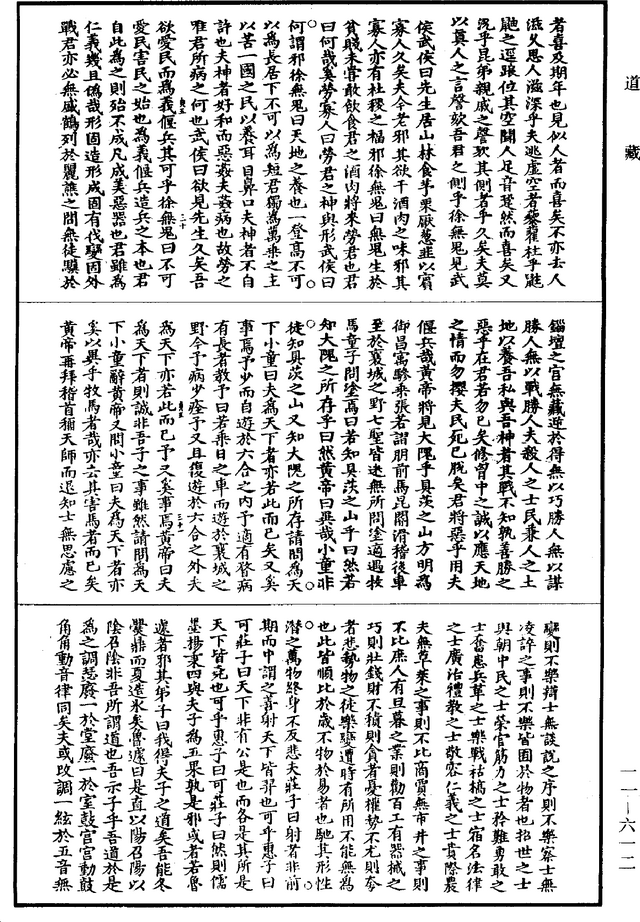 道藏
者喜及期年也見似人者而喜矣不亦去人
滋久思人滋深乎夫逃虛空者藜藋柱乎鼪
鼬之逕踉位其空聞人足音跫然而喜矣又
況乎昆弟親戚之謦欬其側者乎久矣夫莫
以真人之言謦欬吾君之側乎徐無鬼見武
侯武侯曰先生居山林食芧栗厭蔥韭以賓
寡人久矣夫今老邪其欲干酒肉之味邪其
寡人亦有社稷之福邪徐無鬼曰無鬼生於
貧賤未嘗敢飲食君之酒肉將來勞君也君
曰何哉奚勞寡人曰勞君之神與形武侯曰
何謂邪徐無鬼曰天地之養也一登高不可
以為長居下不可以為短君獨為萬乘之主
以苦一國之民以養耳目鼻口夫神者不自
許也夫神者好和而惡姦夫姦病也故勞之
唯君所病之何也武侯曰欲見先生久矣吾
欲愛民而為義偃兵其可乎徐無鬼曰不可
愛民害民之始也為義偃兵造兵之本也君
自此為之則殆不成凡成美惡器也君雖為
仁義幾且偽哉形固造形成固有伐變固外
戰君亦必無盛鶴列於麗譙之間無徒驥於
錙壇之宮無藏逆於得無以巧勝人無以謀
勝人無以戰勝人夫殺人之士民兼人之土
地以養吾私與吾神者其戰不知孰善勝之
惡乎在君若勿已矣修胷中之誠以應天地
之情而勿攖夫民死已脫矣君將惡乎用夫
偃兵哉黃帝將見大隗乎具茨之山方明為
御昌㝢驂乘張若謵朋前馬昆閽滑稽後車
至於襄城之野七聖皆迷無所問塗適遇牧
馬童子問塗焉曰若知具茨之山乎曰然若
知大隗之所存乎曰然黃帝曰異哉小童非
徒知具茨之山又知大隗之所存請問為天
下小童曰夫為天下者亦若此而已矣又奚
事焉予少而自遊於六合之內予適有瞀病
有長者教予曰若乘日之車而遊於襄城之
野今予病少痊予又且復遊於六合之外夫
為天下亦若此而已予又奚事焉黃帝曰夫
為天下者則誠非吾子之事雖然請問為天
下小童辭黃帝又問小童曰夫為天下者亦
奚以異乎牧馬者哉亦去其害馬者而已矣
黃帝再拜稽首稱天師而退知士無思慮之
變則不樂辯士無談說之序則不樂察士無
凌誶之事則不樂皆囿於物者也招世之士
興朝中民之士榮官筋力之士矜難勇敢之
士奮患兵革之士樂戰枯槁之士宿名法律
之士廣治禮教之士敬容仁義之士貴際農
夫無草萊之事則不比商賈無市井之事則
不比庶人有旦暮之業則勸百工有器械之
巧則壯錢財不積則貪者憂權勢不尤則夸
者悲勢物之徒樂變遭時有所用不能無為
也此皆順比於歲不物於易者也馳其形性
潛之萬物終身不反悲夫莊子曰射者非前
期而中謂之善射天下皆羿也可乎惠子曰
可莊子曰天下非有公是也而各是其所是
天下皆堯也可乎惠子曰可莊子曰然則儒
墨楊秉四與夫子為五果孰是邪或者若魯
遽者邪其弟子曰我得夫子之道矣吾能冬
爨鼎而夏造氷矣魯遽曰是直以陽召陽以
陰召陰非吾所謂道也吾示子乎吾道於是
為之調瑟廢一於堂廢一於室鼓宮宮動鼓
角角動音律同矣夫或改調一絃於五音無
一一—六一二